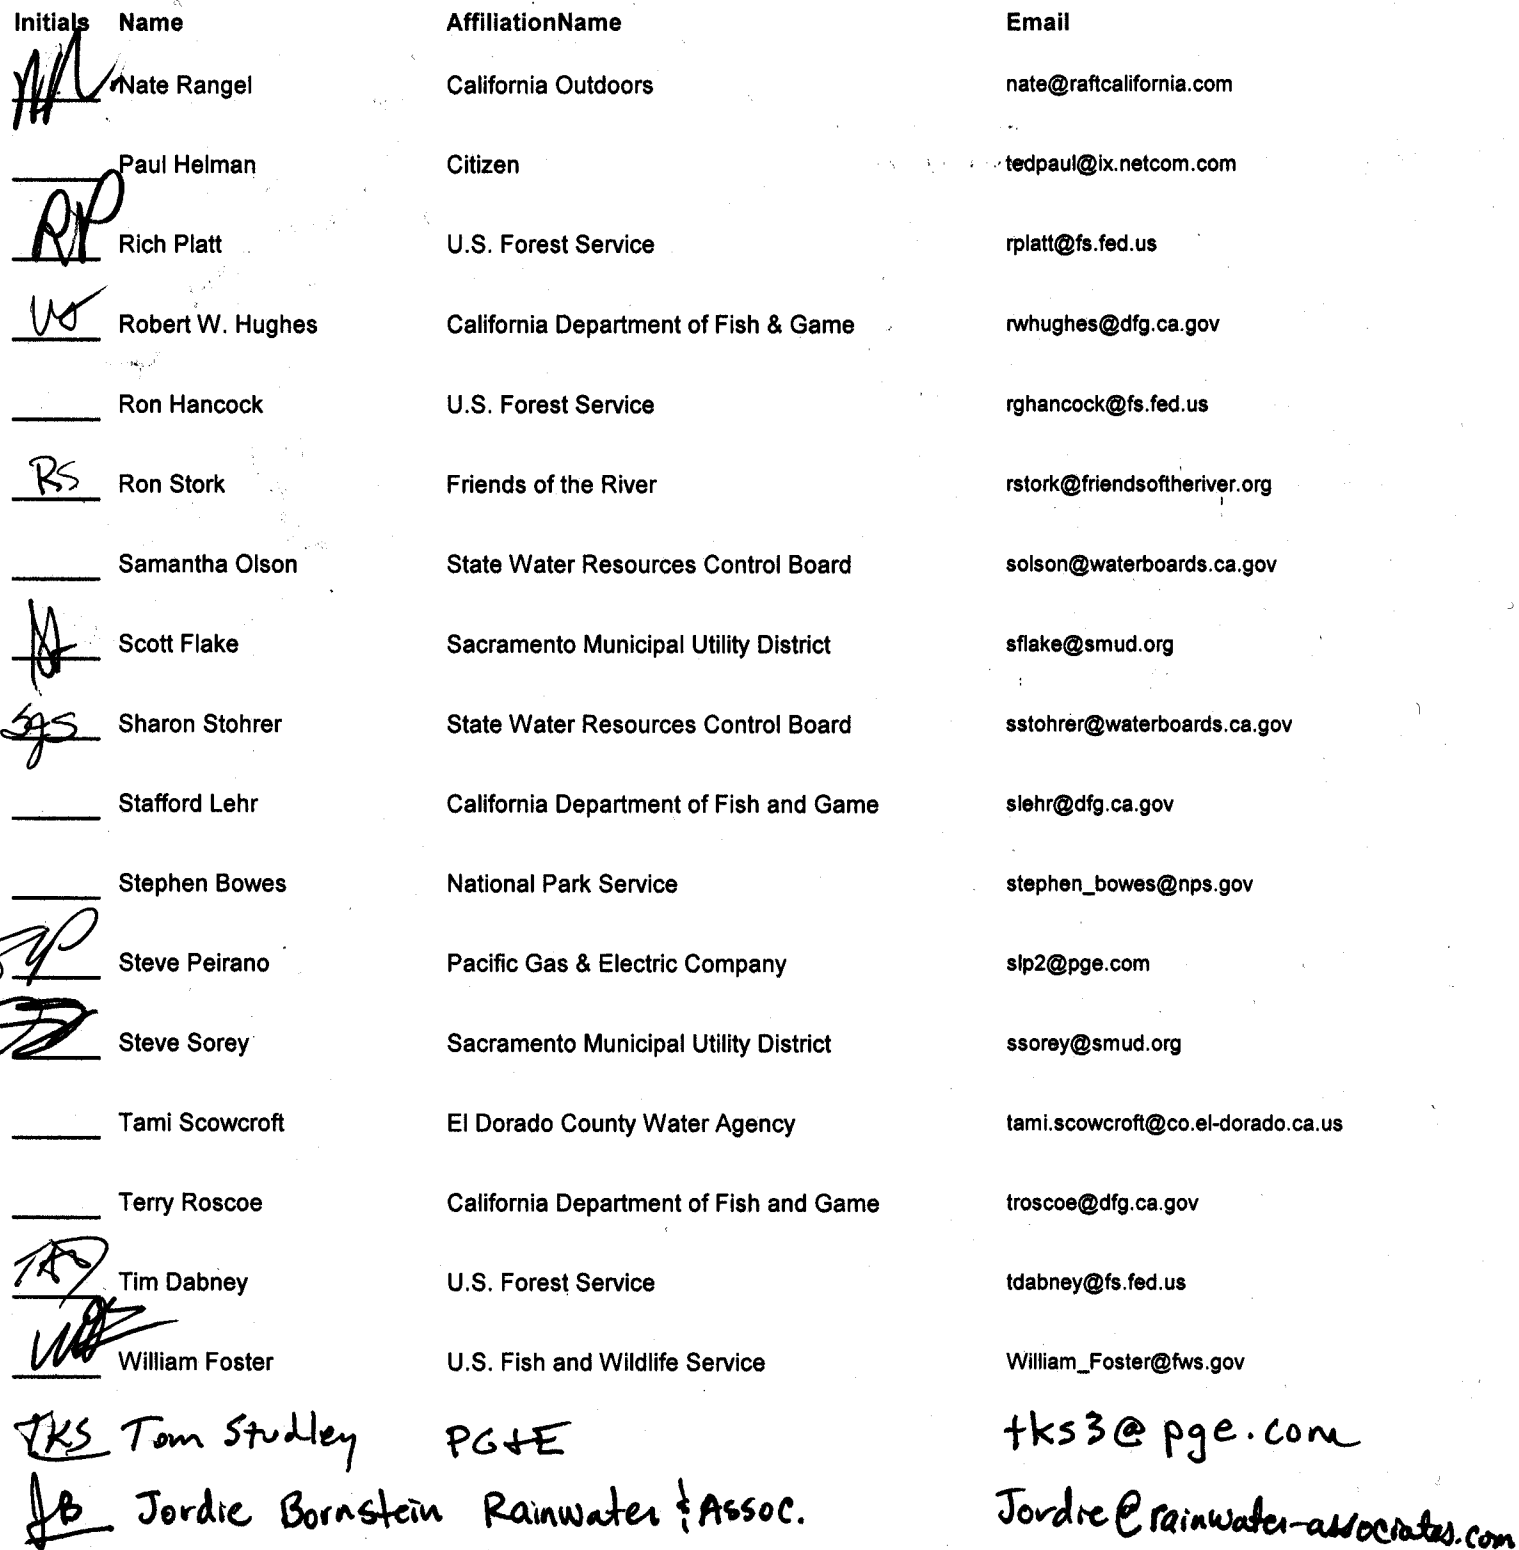 Initials Name AffiliationName Email
Nate Rangel California Outdoors nate@raftcalifornia.com
Paul Helman Citizen tedpaul@ix.netcom.com
RP Rich Platt U.S. Forest Service rplatt@fs.fed.us
Robert W. Hughes California Department of Fish & Game rwhughes@dfg.ca.gov
Ron Hancock U.S. Forest Service rghancock@fs.fed.us
RS Ron Stork Friends of the River rstork@friendsoftheriver.org
Samantha Olson State Water Resources Control Board solson@waterboards.ca.gov
Scott Flake Sacramento Municipal Utility District sflake@smud.org
SJS Sharon Stohrer State Water Resources Control Board sstohrer@waterboards.ca.gov
Stafford Lehr California Department of Fish and Game slehr@dfg.ca.gov
Stephen Bowes National Park Service stephen_bowes@nps.gov
Steve Peirano Pacific Gas & Electric Company slp2@pge.com
Steve Sorey Sacramento Municipal Utility District ssorey@smud.org
Tami Scowcroft El Dorado County Water Agency tami.scowcroft@co.el-dorado.ca.us
Terry Roscoe California Department of Fish and Game troscoe@dfg.ca.gov
TAD Tim Dabney U.S. Forest Service tdabney@fs.fed.us
William Foster U.S. Fish and Wildlife Service William_Foster@fws.gov
TKS Tom Studley PG&E tks3@pge.com
JB Jordie Bornstein Rainwater & Assoc. Jordie@rainwater-associates.com